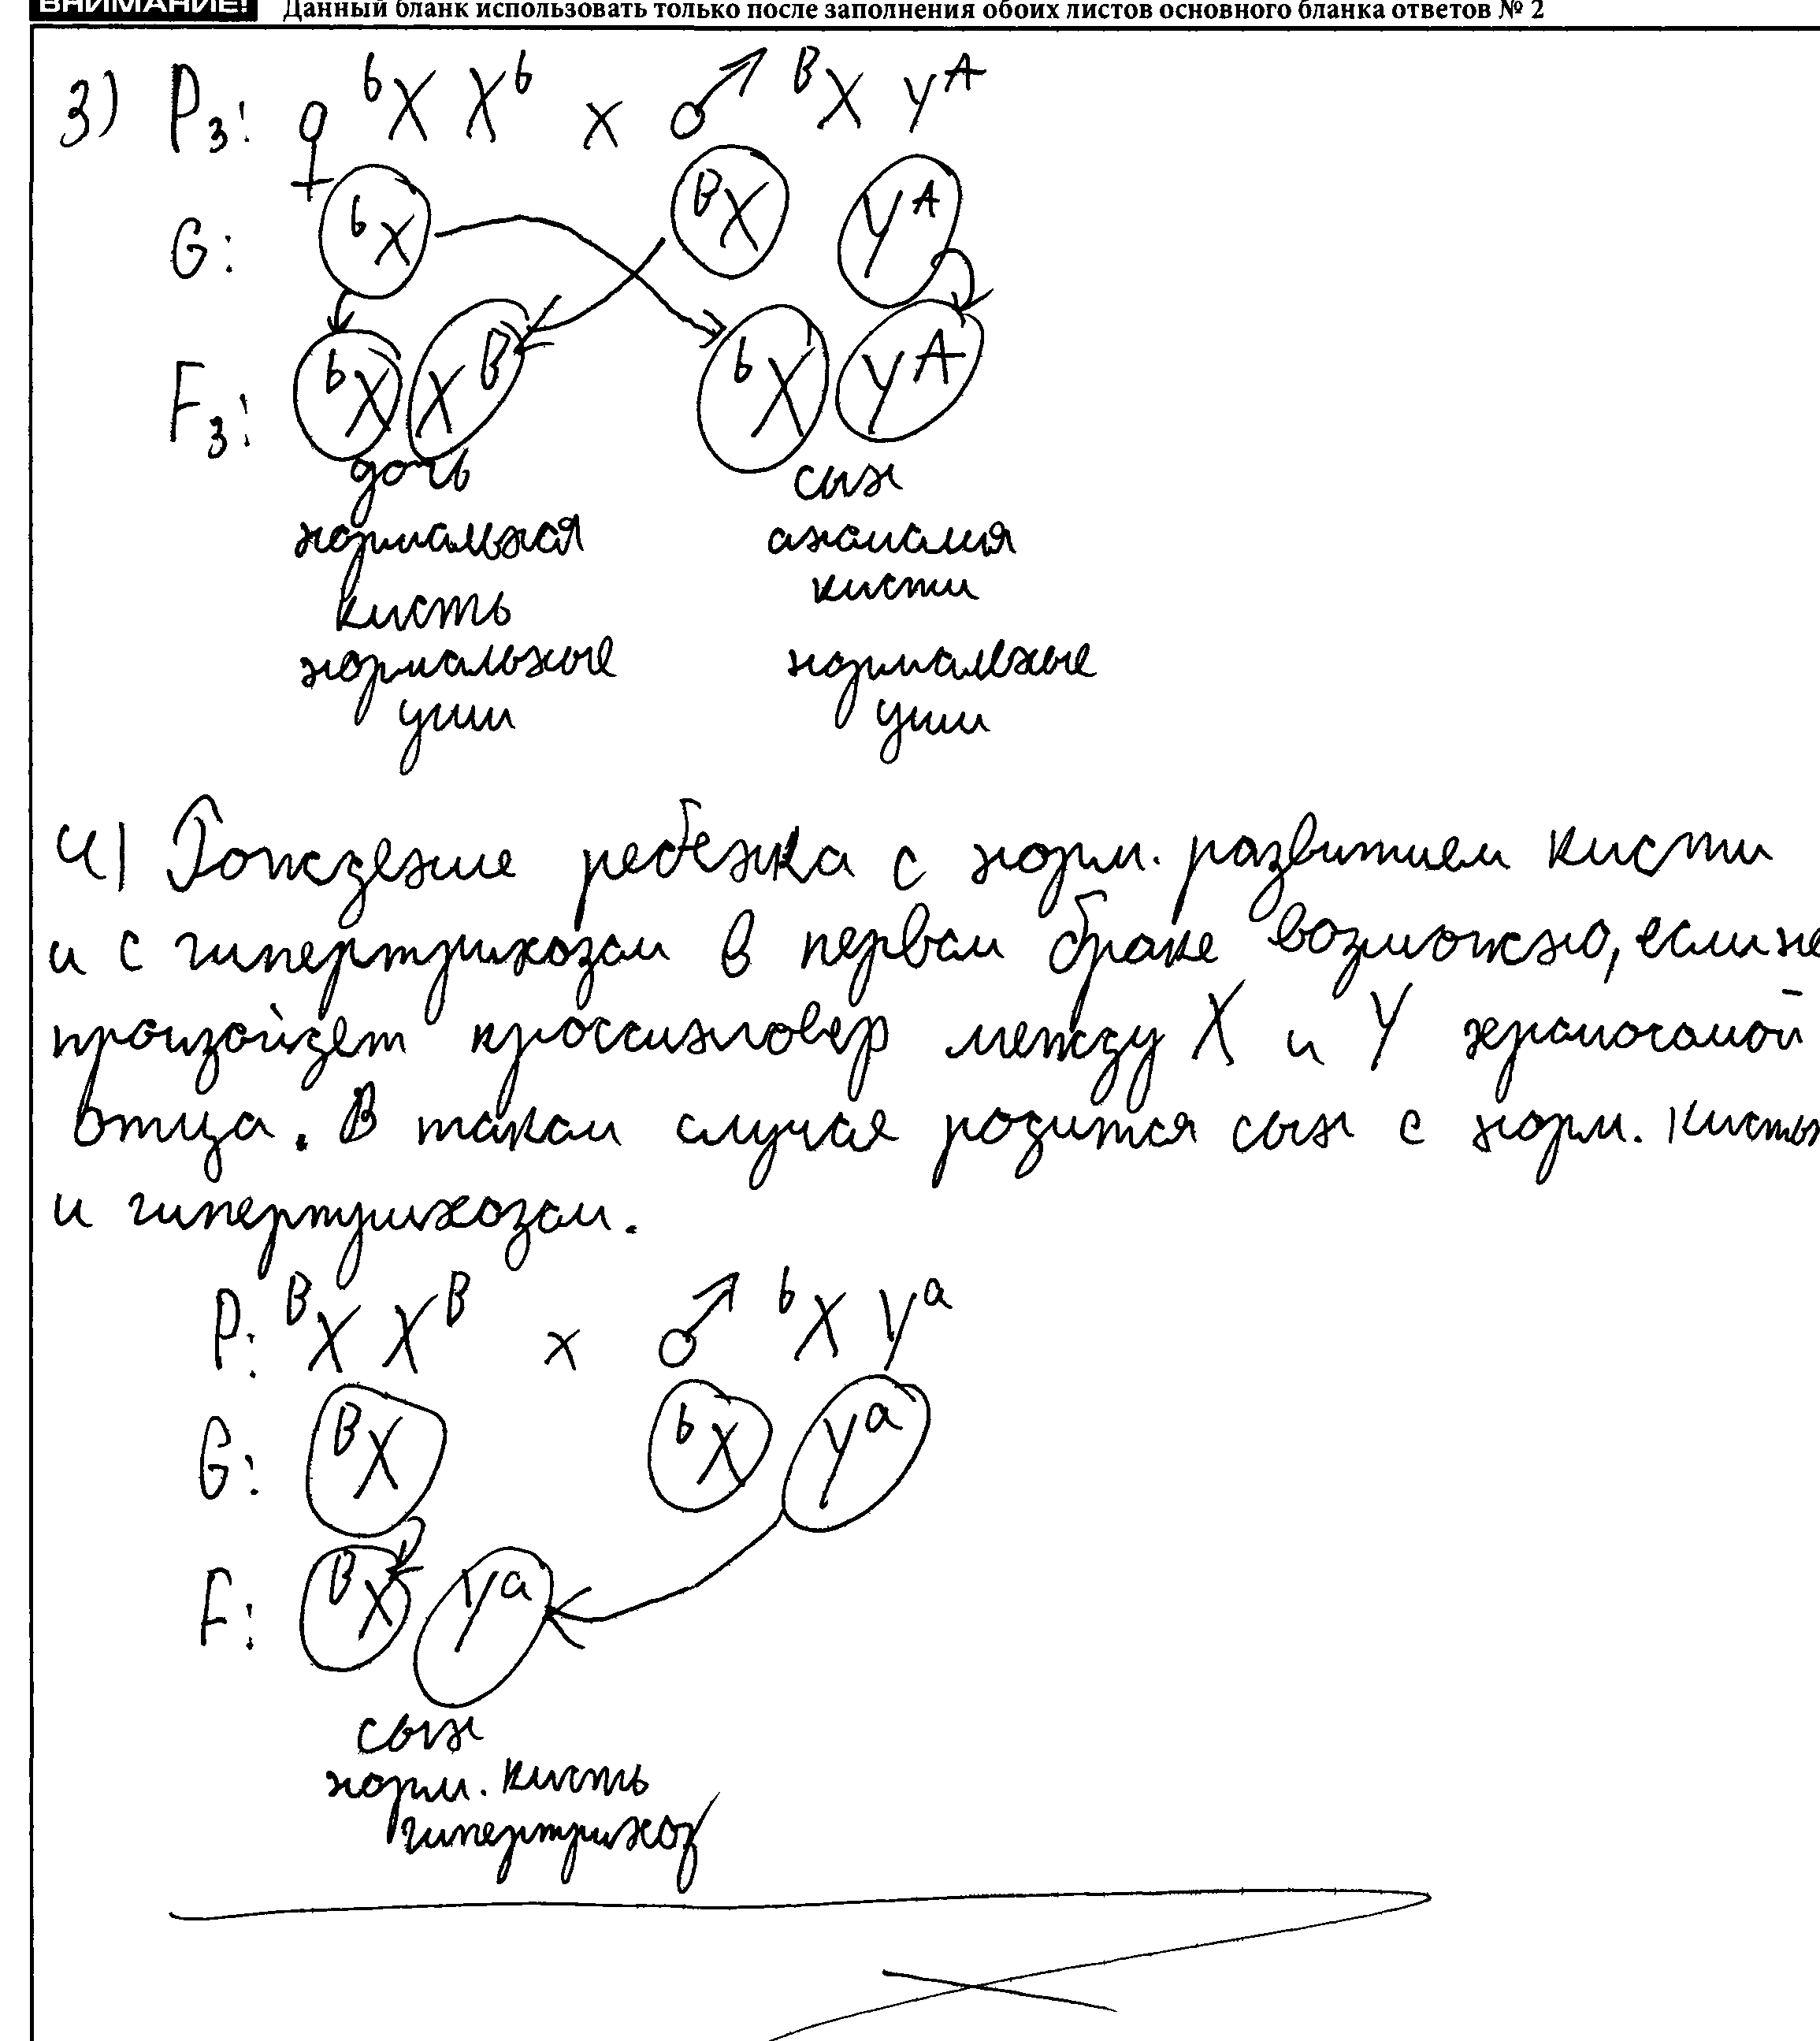 ВНИМАНИЕ! Данный бланк использовать только после заполнения обоих листов основного бланка ответов № 2
3) P₃: ♀ ᵇX Xᵇ x ♂ ᴮX Yᴬ
G: ᵇX ᴮX Yᴬ
F₃: ᵇX Xᴮ ᵇX Yᴬ
дочь сын
нормальная аномалия
кисть кисти
нормальные нормальные
уши уши
4) Рождение ребенка с норм. развитием кисти
и с гипертрихозом в первом браке возможно, если не
произойдет кроссинговер между X и Y хромосомой
отца. В таком случае родится сын с норм. кистью
и гипертрихозом.
P: ᴮX Xᴮ x ♂ ᵇX Yᵃ
G: ᴮX ᵇX Yᵃ
F: ᴮX Yᵃ
сын
норм. кисть
гипертрихоз